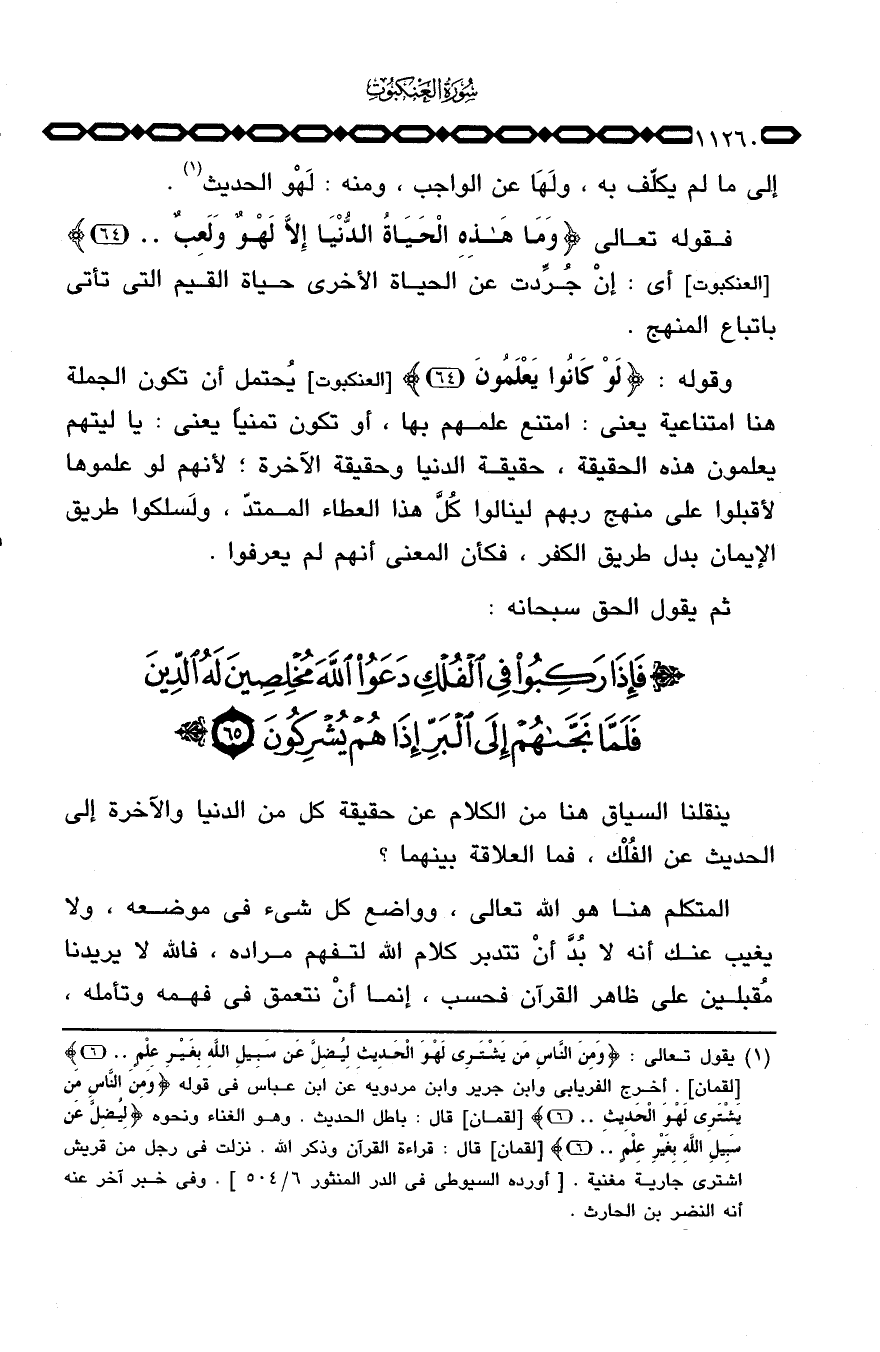 سُورَةُ العَنكَبُوتِ
١١٢٦٠
إلى ما لم يكلّف به ، ولَهَا عن الواجب ، ومنه : لَهْو الحديث(١) .
فقوله تعالى ﴿وَمَا هَـٰذِهِ الْحَيَاةُ الدُّنْيَا إِلاَّ لَهْوٌ وَلَعِبٌ .. (٦٤)﴾
[العنكبوت] أى : إنْ جُرِّدت عن الحياة الأخرى حياة القيم التى تأتى
باتباع المنهج .
وقوله : ﴿لَوْ كَانُوا يَعْلَمُونَ (٦٤)﴾ [العنكبوت] يُحتمل أن تكون الجملة
هنا امتناعية يعنى : امتنع علمهم بها ، أو تكون تمنياً يعنى : يا ليتهم
يعلمون هذه الحقيقة ، حقيقة الدنيا وحقيقة الآخرة ؛ لأنهم لو علموها
لأقبلوا على منهج ربهم لينالوا كُلَّ هذا العطاء الممتدّ ، ولَسلكوا طريق
الإيمان بدل طريق الكفر ، فكأن المعنى أنهم لم يعرفوا .
ثم يقول الحق سبحانه :
﴿فَإِذَا رَكِبُوا۟ فِى ٱلْفُلْكِ دَعَوُا۟ ٱللَّهَ مُخْلِصِينَ لَهُ ٱلدِّينَ
فَلَمَّا نَجَّىٰهُمْ إِلَى ٱلْبَرِّ إِذَا هُمْ يُشْرِكُونَ ٦٥﴾
ينقلنا السياق هنا من الكلام عن حقيقة كل من الدنيا والآخرة إلى
الحديث عن الفُلْك ، فما العلاقة بينهما ؟
المتكلم هنا هو الله تعالى ، وواضع كل شىء فى موضعه ، ولا
يغيب عنك أنه لا بُدَّ أنْ تتدبر كلام الله لتفهم مراده ، فالله لا يريدنا
مُقبلين على ظاهر القرآن فحسب ، إنما أنْ نتعمق فى فهمه وتأمله ،
(١) يقول تعالى : ﴿وَمِنَ النَّاسِ مَن يَشْتَرِى لَهْوَ الْحَدِيثِ لِيُضِلَّ عَن سَبِيلِ اللَّهِ بِغَيْرِ عِلْمٍ .. (٦)﴾
[لقمان] . أخرج الفريابى وابن جرير وابن مردويه عن ابن عباس فى قوله ﴿وَمِنَ النَّاسِ مَن
يَشْتَرِى لَهْوَ الْحَدِيثِ .. (٦)﴾ [لقمان] قال : باطل الحديث . وهو الغناء ونحوه ﴿لِيُضِلَّ عَن
سَبِيلِ اللَّهِ بِغَيْرِ عِلْمٍ .. (٦)﴾ [لقمان] قال : قراءة القرآن وذكر الله . نزلت فى رجل من قريش
اشترى جارية مغنية . [ أورده السيوطى فى الدر المنثور ٥٠٤/٦ ] . وفى خبر آخر عنه
أنه النضر بن الحارث .